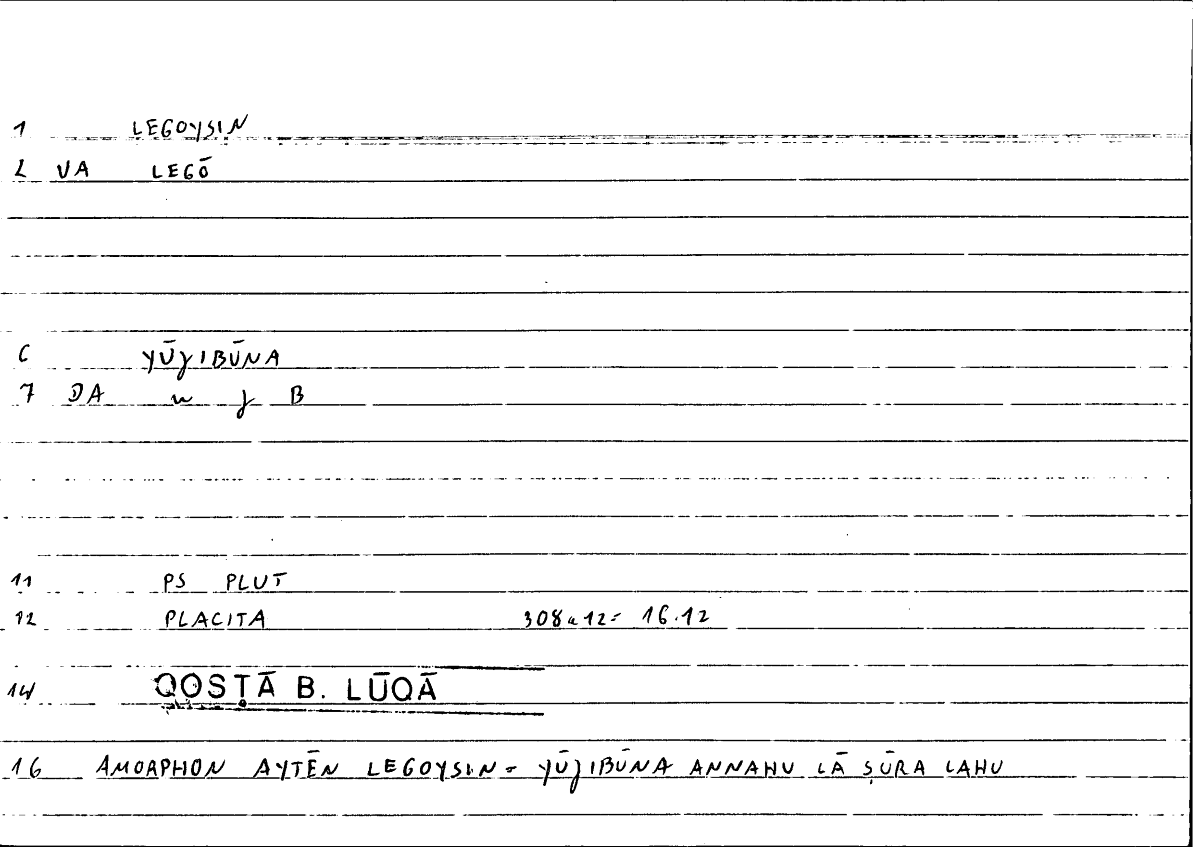 1 LEGOYSIN
2 VA LEGŌ
6 YŪJIBŪNA
7 DA w j B
11 PS PLUT
12 PLACITA 308a12= 16.12
14 QOSṬĀ B. LŪQĀ
16 AMORPHON AYTĒN LEGOYSIN= YŪJIBŪNA ANNAHU LĀ ṢŪRA LAHU